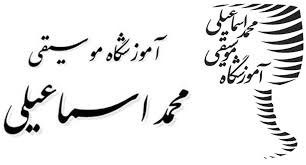 آموزشگاه موسیقی
محمد اسماعیلی
محمد اسماعیلی
موسیقی
آموزشگاه